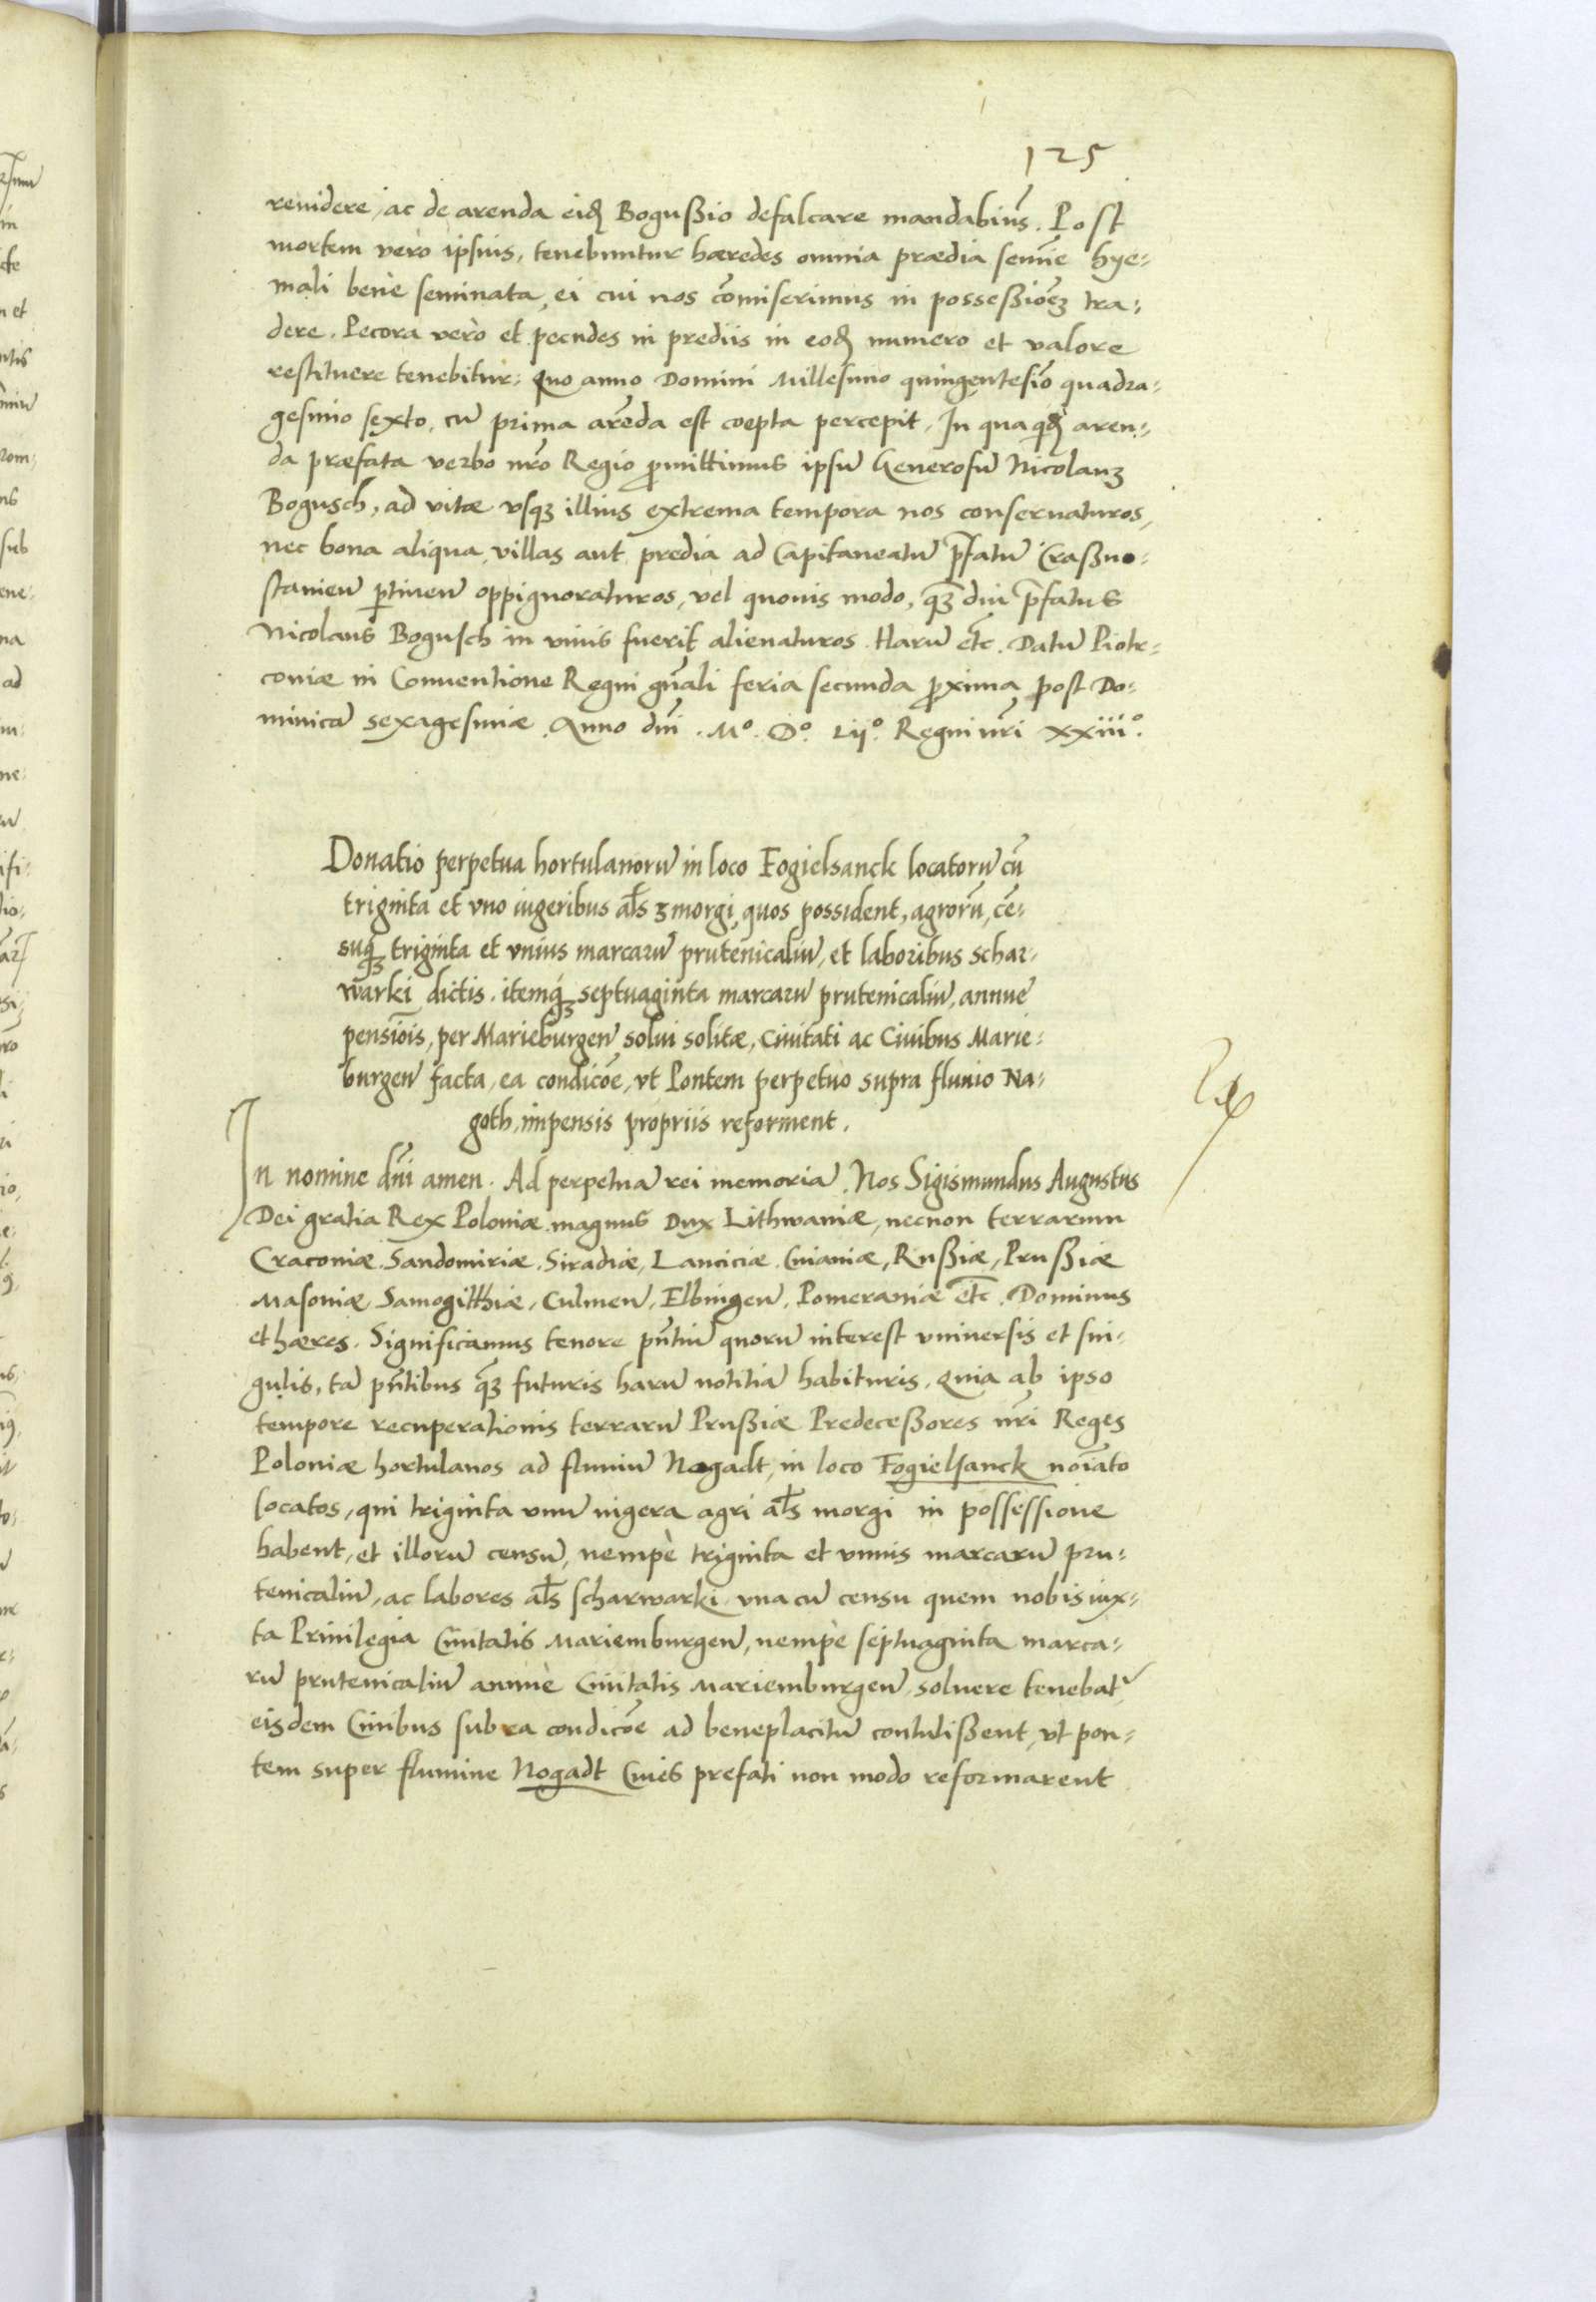 125
reuidere, ac de arenda eidꝫ Bogußio defalcare mandabim̃s. Post
mortem verò ipsius, tenebuntur hæredes omnia prædia semĩe hye-
mali benè seminata, ei cui nos cõmiserimus in possessioẽꝫ tra-
dere. Pecora verò et pecudes in prediis in eodꝫ numero et valore
restituere tenebitur: Quo anno Domini Millesimo quingentesiõ quadra-
gesimo sexto, cũ prima arẽda est coepta percepit. In qua qidꝫ aren-
da præfata verbo nr̃o Regio p̃mittimus ipsũ Generosũ Nicolauꝫ
Bogusch, ad vitæ vsqꝫ illius extrema tempora nos conseruaturos,
nec bona aliqua, villas aut predia ad Capitaneatũ p̃fatũ Craßno-
stauieñ ptineñ oppignoraturos, vel quouis modo, qꝫdiu p̃fatus
Nicolaus Bogusch in viuis fuerit alienaturos. Harũ etc̃. Datũ Piotr-
couiæ in Conuentione Regni gñali feria secunda p̃xima post Do-
minicã sexagesimæ. Anno dñi. Mº. Dº. Lijº. Regni nr̃i xxiiiº.
Donatio perpetua hortulanorũ in loco Fogielsanck locatorũ cũ
triginta et vno iugeribus al̃s ʒmorgi quos possident, agrorũ, cẽ-
suqꝫ triginta et vnius marcarũ prutenicaliũ, et laboribus schar-
warki dictis. itemqꝫ septuaginta marcarũ prutenicaliũ, annuè
pensiõis, per Marieburgeñ solui solitæ, Ciuitati ac Ciuibus Marie-
burgeñ facta, ea condicõe, vt Pontem perpetuo supra fluuio Na-
goth, impensis propriis reforment.
In nomine dñi amen. Ad perpetuã rei memoriã. Nos Sigismundus Augustus
Dei gratia Rex Poloniæ magnus Dux Lithwaniæ, necnon terrarum
Cracouiæ. Sandomiriæ. Siradiæ, Lanciciæ. Cuiauiæ, Rußiæ, Prußiæ
Masouiæ Samogitthiæ, Culmeñ, Elbingeñ, Pomeraniæ etc̃. Dominus
et hæres. Significamus tenore pñtiũ quorũ interest vniuersis et sin-
gulis, tã pñtibus qꝫ futuris harũ notitiã habituris. Quia ab ipso
tempore recuperationis terrarũ Prußiæ Predeceßores nr̃i Reges
Poloniæ hortulanos ad fluuiũ Nogadt, in loco Fogielsanck noĩato
locatos, qui triginta vnũ iugera agri al̃s morgi in possessione
habent, et illorũ censũ, nempè triginta et vnius marcarũ pru-
tenicaliũ, ac labores al̃s scharwarki vna cũ censu quem nobis iux-
ta Priuilegia Ciuitatis Mariemburgeñ, nempè septuaginta marca-
rũ prutenicaliũ annuè Ciuitatis Mariemburgeñ soluere tenebat᷑
eisdem Ciuibus sub ea condicõe ad beneplacitũ contulißent, vt pon-
tem super flumine Nogadt Ciues prefati non modo reformarent